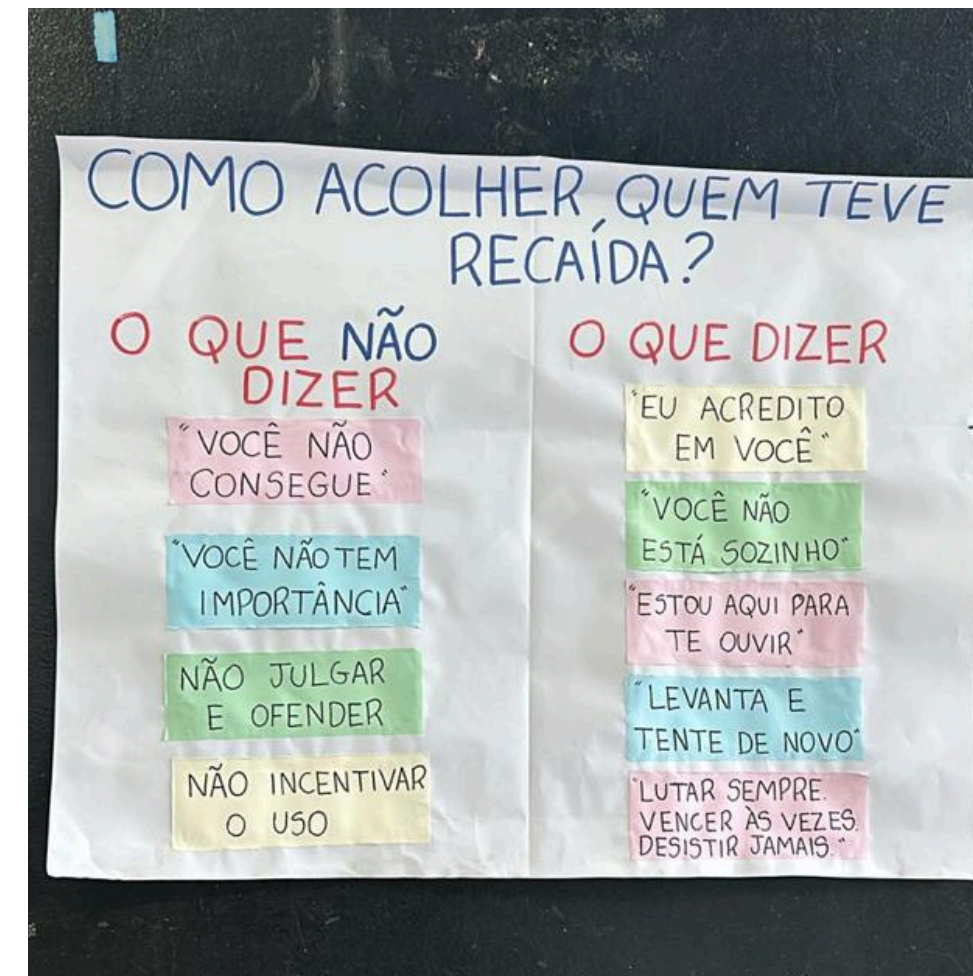 COMO ACOLHER QUEM TEVE
RECAÍDA?
O QUE NÃO
DIZER
"VOCÊ NÃO
CONSEGUE"
"VOCÊ NÃO TEM
IMPORTÂNCIA"
NÃO JULGAR
E OFENDER
NÃO INCENTIVAR
O USO
O QUE DIZER
"EU ACREDITO
EM VOCÊ"
"VOCÊ NÃO
ESTÁ SOZINHO"
"ESTOU AQUI PARA
TE OUVIR"
"LEVANTA E
TENTE DE NOVO"
"LUTAR SEMPRE.
VENCER ÀS VEZES.
DESISTIR JAMAIS."